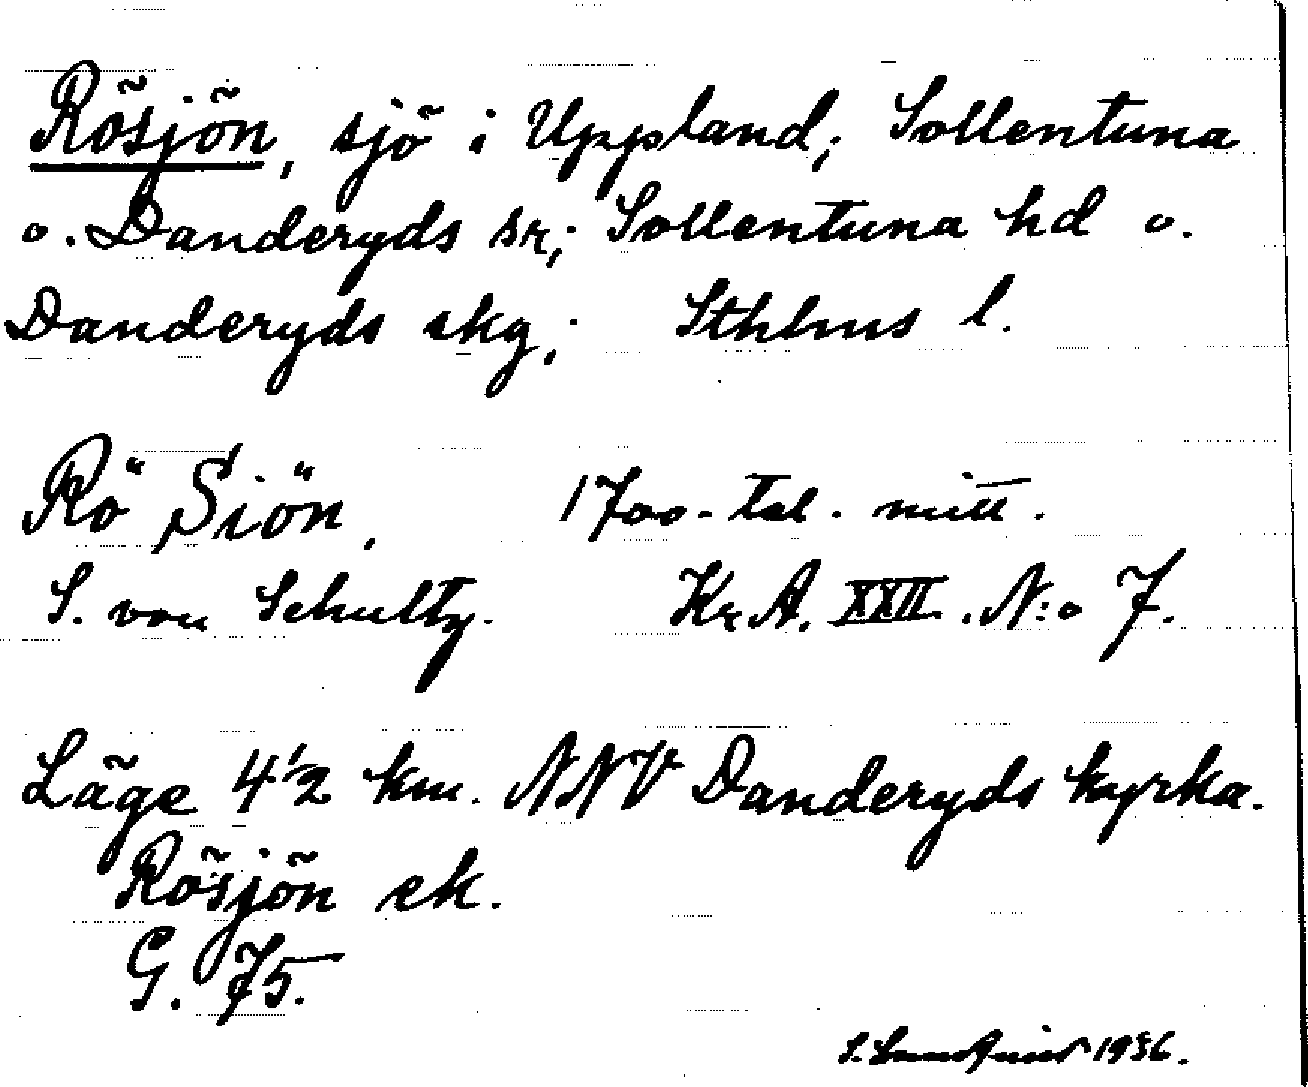 Rösjön, sjö i Uppland; Sollentuna
o. Danderyds sr; Sollentuna hd o.
Danderyds skg; Sthlms l.
Rö Siön, 1700-tal. mitt.
S. von Schultz. Kr.A. XXII. N:o 7.
Läge 4 1/2 km. NNV Danderyds kyrka.
Rösjön ek.
G. 75.
S. 1936.